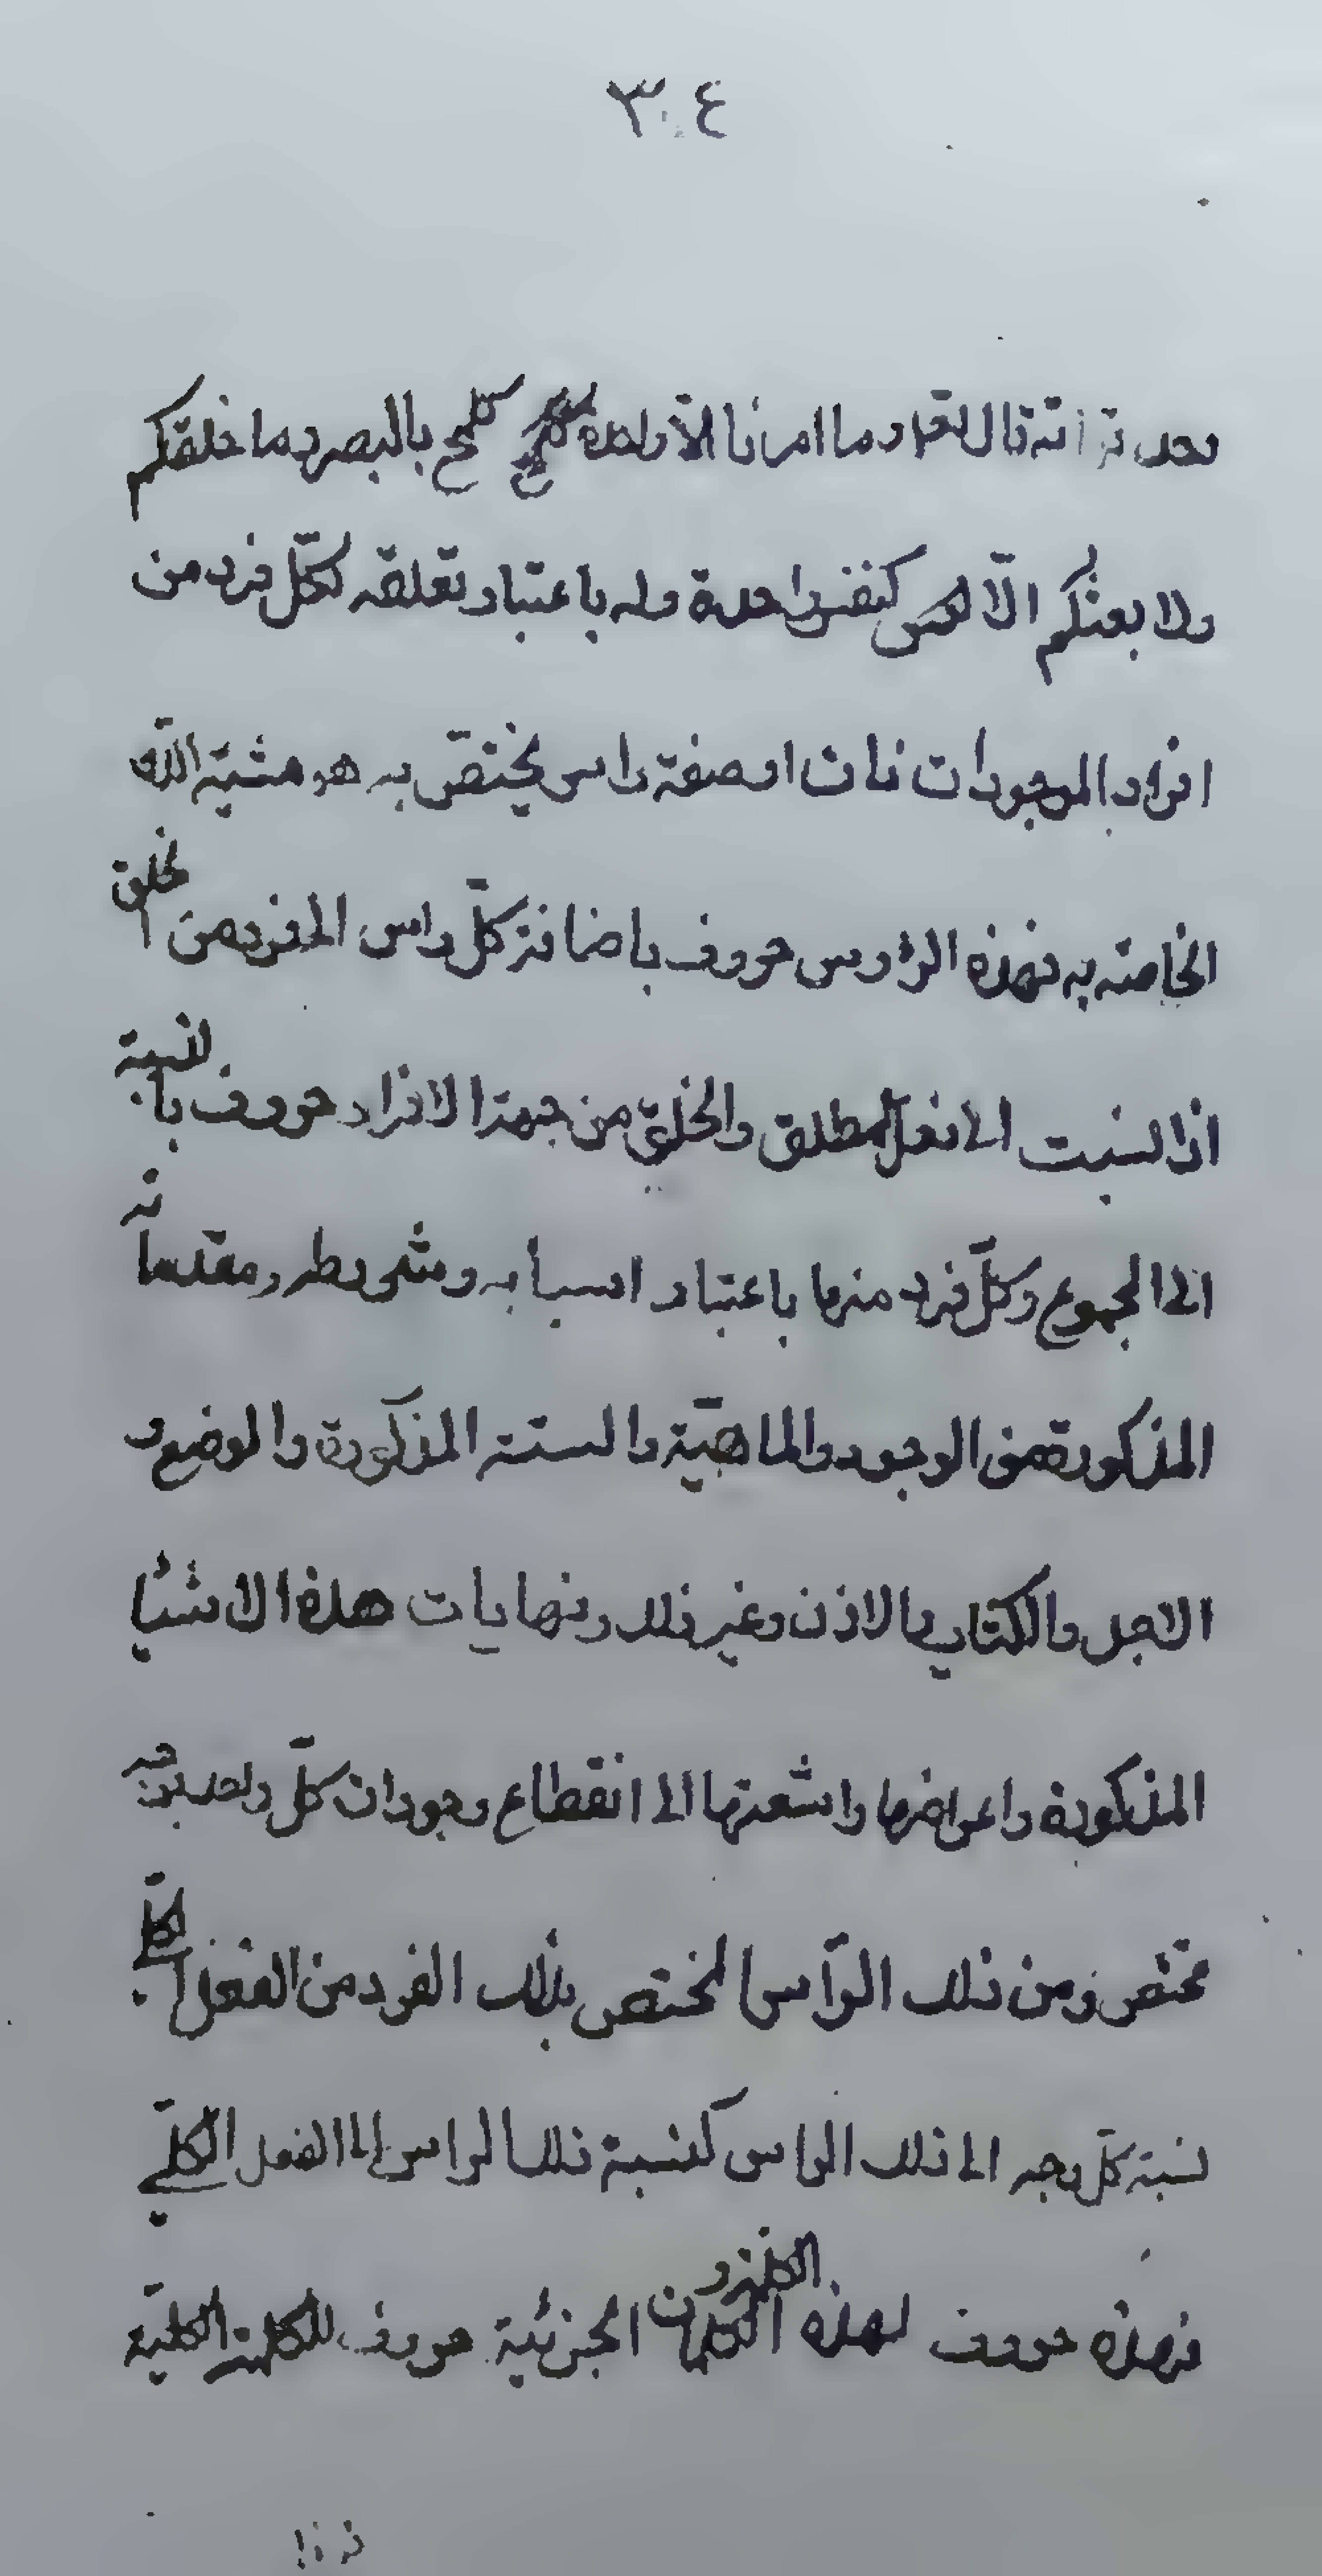 ٣٠٤
وما امرنا الّا واحدة كلمح بالبصر وما خلقكم
ولا بعثكم الّا كنفس واحدة وله باعتبار تعلقه لكلّ فرد من
افراد الموجودات ذات او صفة راس يختصّ به هو مشيّة اللّه
الخاصة به فهذه الرؤوس حروف باضافة كلّ راس الى فرد من الخلق
اذا نسبت الى الفعل المطلق والخلق من جهة الافراد حروف بالنسبة
الى المجموع وكلّ فرد منها باعتبار اسبابه وشروطه ومقدماته
المذكورة من الوجود والماهيّة والستة المذكورة والوضع و
الاجل والكتاب والاذن وغير ذلك ونهايات هذه الاشيا
المذكورة واعراضها واشعتها الى انقطاع وجودات كلّ واحد بوجه
مختص ومن ذلك الرأس المختص بذلك الفرد من الفعل الكلّي
نسبة كلّ وجه الى ذلك الراس كنسبة ذلك الراس الى الفعل الكلّي
فهذه حروف لهذه الكلمات الجزئية حروف للكلمة الكليّة